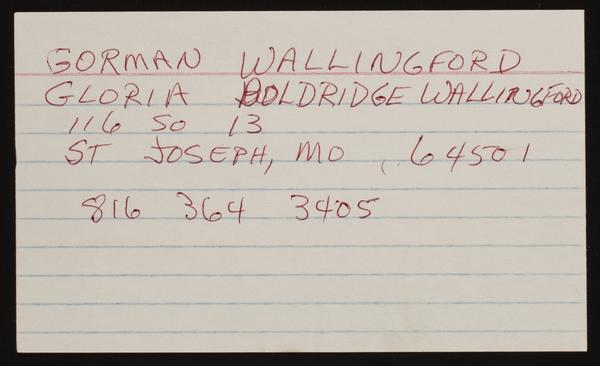 GORMAN WALLINGFORD
GLORIA BOLDRIDGE WALLINGFORD
116 SO 13
ST JOSEPH, MO, 64501
816 364 3405